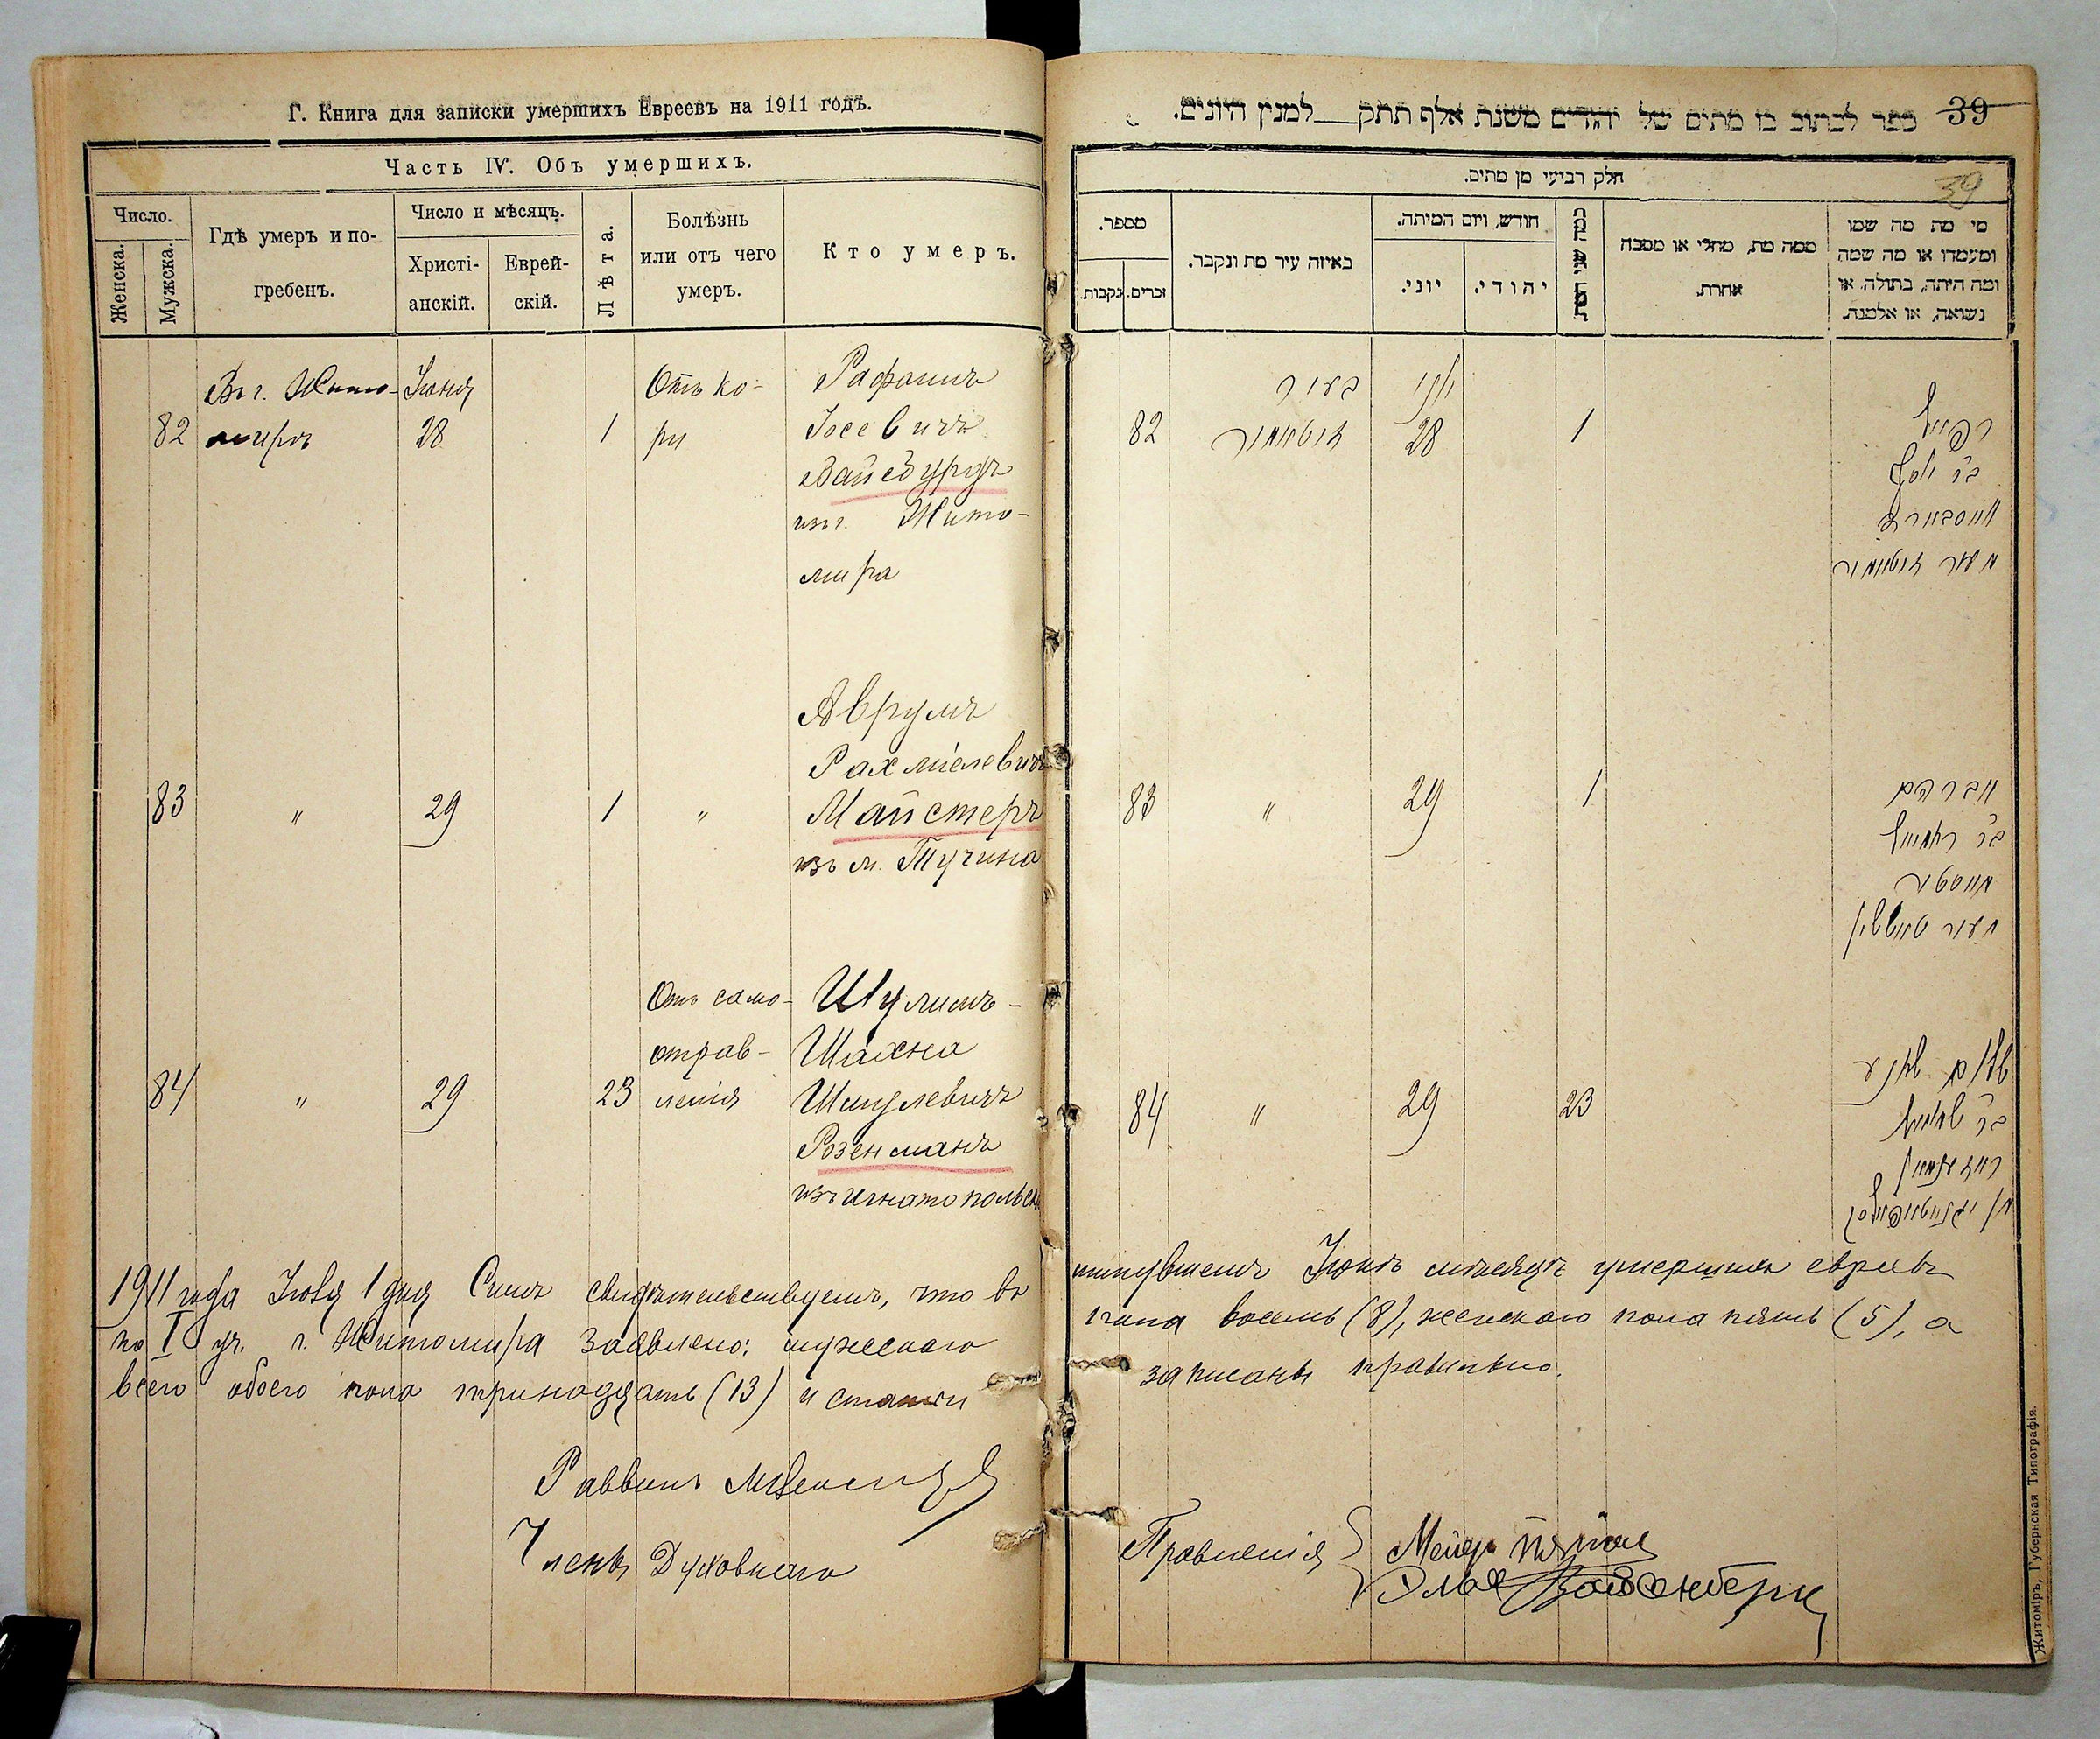 Г. Книга для записки умершихъ Евреевъ на 1911 годъ.
Часть IV. Объ умершихъ.
Число.
Женска.
Мужска.
Гдѣ умеръ и по-
гребенъ.
Число и мѣсяцъ.
Христі-
анскій.
Еврей-
скій.
Лѣта.
Болѣзнь
или отъ чего
умеръ.
Кто умеръ.
82
Въ г. Жито-
мирѣ
Іюня
28
1
Отъ ко-
ри
Рафаилъ
Іосевичъ
Вайсбурдъ
изъ г. Жито-
мира
83
"
29
1
"
Аврумъ
Рахміелевичъ
Майстеръ
изъ м. Тучина
84
"
29
23
Отъ само-
отрав-
ленія
Шулимъ-
Шахна
Шмулевичъ
Розенманъ
изъ Игнатополь
1911 года Іюля 1 дня Симъ свидѣтельствуемъ, что въ
по I уч. г. Житомира заявлено: мужескаго
всего обоего пола тринадцать (13) и статьи
Раввинъ
Члены Духовнаго
39
ספר לכתוב בו מתים של יהודים משנת אלף תתק למנין היונים.
39
חלק רביעי מן מתים.
מספר.
נקבות.
זכרים.
באיזה עיר מת ונקבר.
חודש, ויום המיתה.
יוני.
יהודי.
כמה שני המת
ממה מת, מחלי או מסבה
אחרת.
מי מת מה שמו
ומעמדו או מה שמה
ומה היתה, בתולה, או
נשואה, או אלמנה.
82
בעיר
זיטאמיר
יוני
28
1
רפאל
ב״ר יוסף
ווייסבורד
מעיר זיטאמיר
83
"
29
1
אברהם
ב״ר ירחמיאל
מייסטער
מעיר
84
"
29
23
שלום שכנע
ב״ר שמואל
ראזענמאן
מן
минувшемъ Іюнѣ мѣсяцѣ умершихъ евреевъ
пола восемь (8), женскаго пола пять (5), а
записаны правильно.
Правленія
Житоміръ, Губернская Типографія.